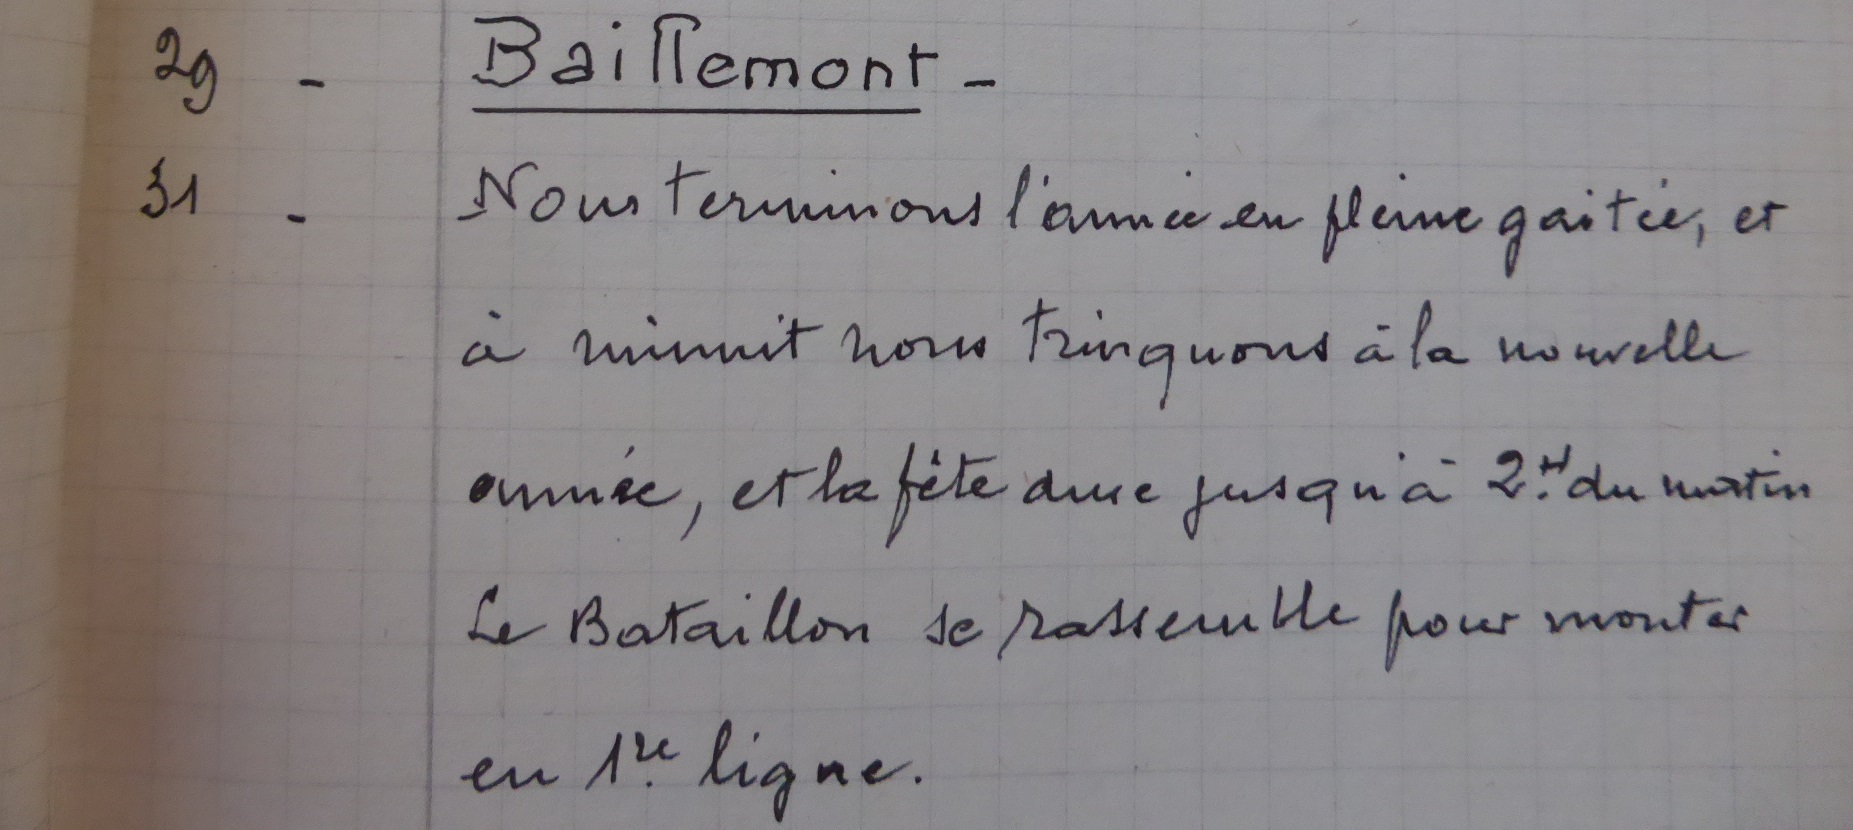 29 - Baillemont -
31 - Nous terminons l'année en pleine gaitée, et
à minuit nous trinquons à la nouvelle
année, et la fête dure jusqu'à 2.H du matin
Le Bataillon se rassemble pour monter
en 1.re ligne.